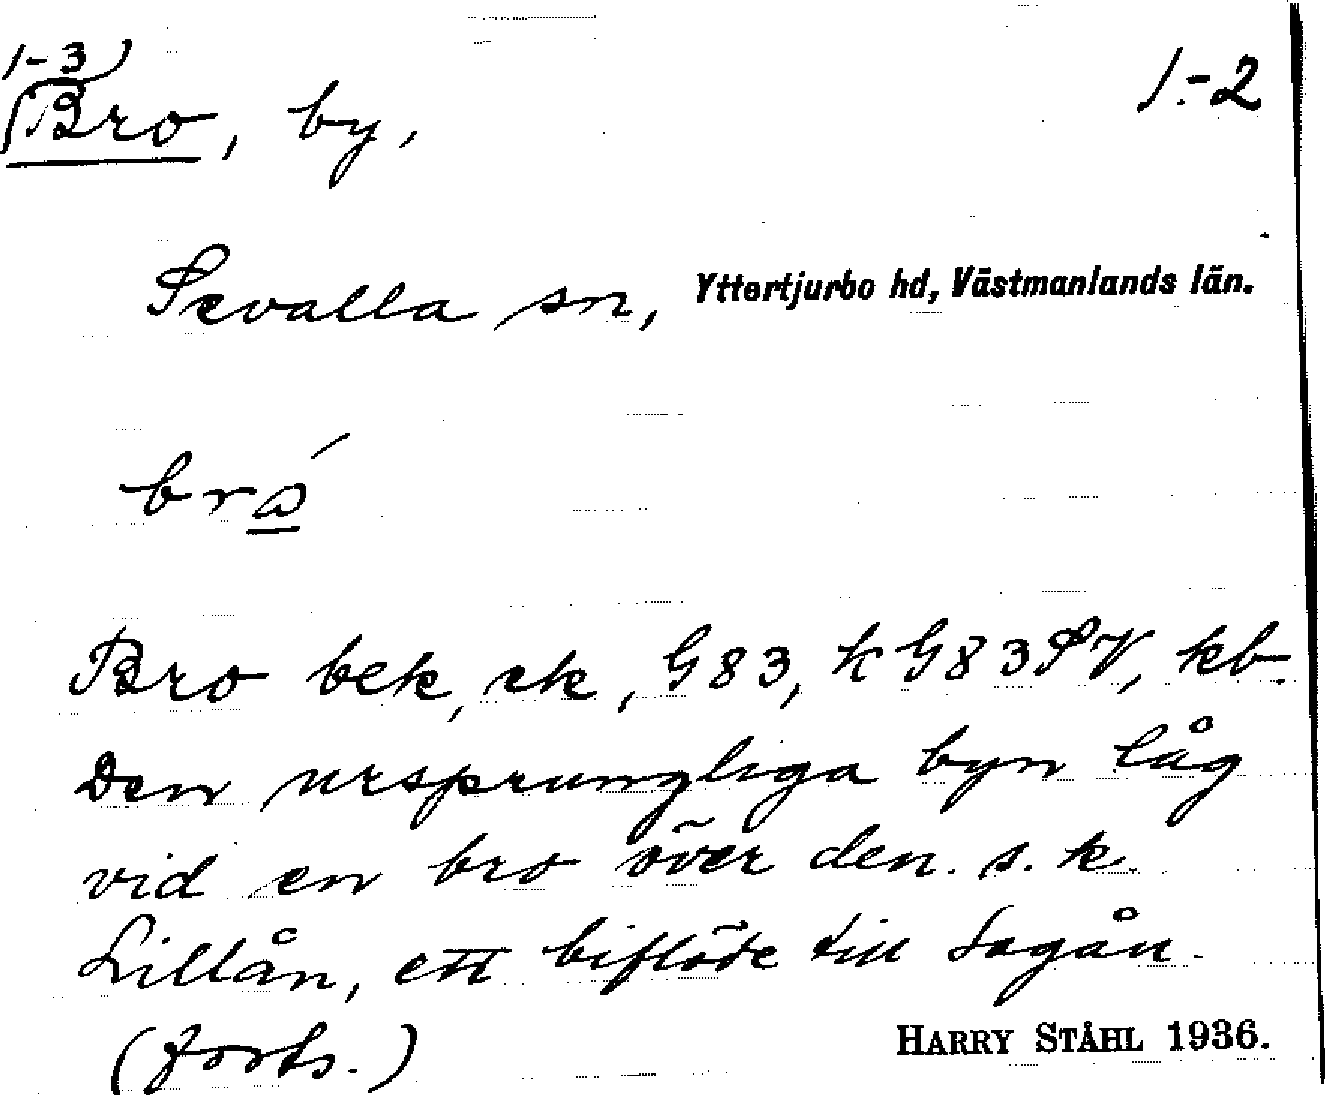 1-3)
Bro, by,
1.-2
Sevalla sn, Yttertjurbo hd, Västmanlands län.
brɷ́
Bro bek, ek, G83, k G83SV, kb.
Den ursprungliga byn låg
vid en bro över den s.k.
Lillån, ett biflöde till Sagån.
(forts.)
HARRY STÅHL 1936.